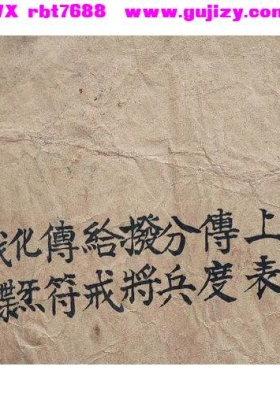 VX rbt7688 www.gujizy.com
上表
傳度
分兵
撥將
給戒
傳符
化炁